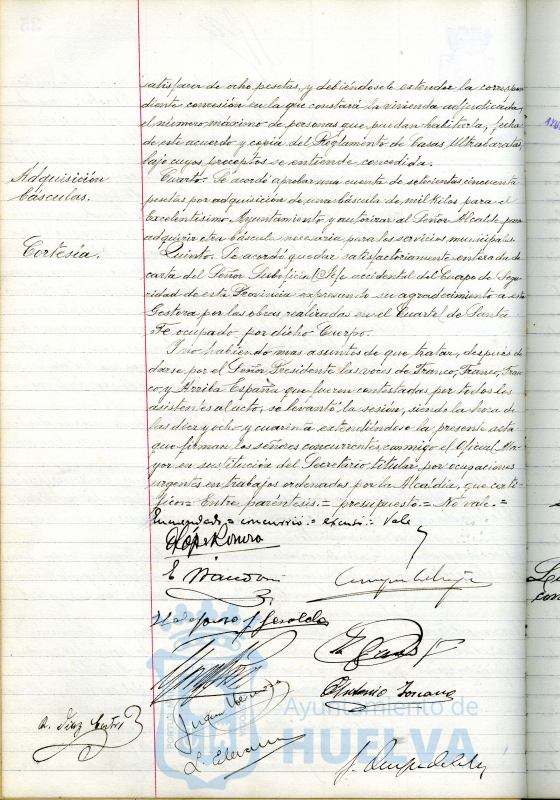 satisfacer de ocho pesetas, y debiéndosele extender la correspon
diente concesión en la que constará la vivienda adjudicada,
el número máximo de personas que puedan habitarla, fecha
de este acuerdo y copia del Reglamento de Casas Ultrabaratas,
bajo cuyos preceptos se entiende concedida.
Adquisición
básculas.
Cuarto. Se acordó aprobar una cuenta de setecientas cincuenta
pesetas por adquisición de una báscula de mil kilos para el
Excelentísimo Ayuntamiento y autorizar al Señor Alcalde para
adquirir otra báscula necesaria para los servicios municipales.
Cortesía.
Quinto. Se acordó quedar satisfactoriamente enterados de
carta del Señor Jefe accidental del Cuerpo de Segu
ridad de esta Provincia expresando su agradecimiento a esta
Gestora por las obras realizadas en el Cuartel de Santa
Fe ocupado por dicho Cuerpo.
Y no habiendo mas asuntos de que tratar, después de
darse por el Señor Presidente las voces de Franco, Franco, Fran
co y Arriba España que fueron contestadas por todos los
asistentes al acto, se levantó la sesión, siendo la hora de
las diez y ocho y cuarenta extendiéndose la presente acta
que firman los señores concurrentes, conmigo el Oficial Ma
yor en sustitución del Secretario titular, por ocupaciones
urgentes en trabajos ordenados por la Alcaldía, que certi
fico= Entre paréntesis.= presupuesto.= No vale.=
Enmendado = concursos.= Vale
Antonio Toscano
Ayuntamiento de
HUELVA